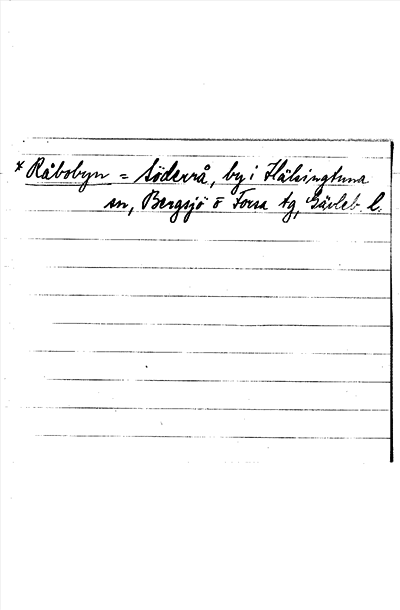 * Råbobyn = Söderrå, by i Hälsingtuna
sn, Bergsjö o Forsa tg, Gävleb. l.